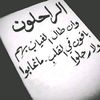 الراحلون
وان طال الغياب بهم
باقون في القلب ماغابوا
ولا رحلوا